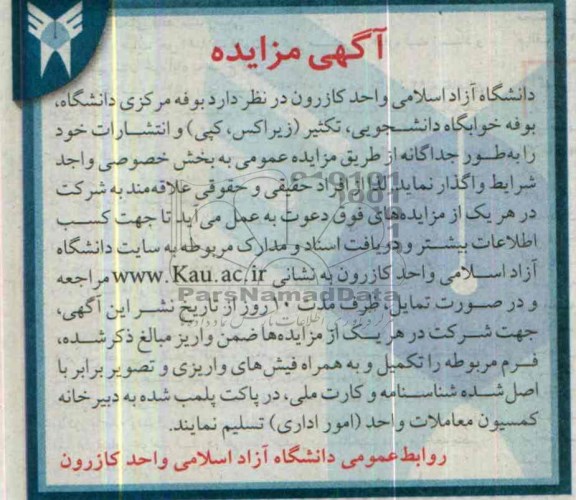 آگهی مزایده
دانشگاه آزاد اسلامی واحد کازرون در نظر دارد بوفه مرکزی دانشگاه،
بوفه خوابگاه دانشجویی، تکثیر (زیراکس، کپی) و انتشارات خود
را به‌طور جداگانه از طریق مزایده عمومی به بخش خصوصی واجد
شرایط واگذار نماید، لذا از افراد حقیقی و حقوقی علاقه‌مند به شرکت
در هر یک از مزایده‌های فوق دعوت به عمل می‌آید تا جهت کسب
اطلاعات بیشتر و دریافت اسناد و مدارک مربوطه به سایت دانشگاه
آزاد اسلامی واحد کازرون به نشانی www.Kau.ac.ir مراجعه
ParsNamadData
و در صورت تمایل، ظرف مدت ۱۰ روز از تاریخ نشر این آگهی،
جهت شرکت در هر یک از مزایده‌ها ضمن واریز مبالغ ذکر شده،
فرم مربوطه را تکمیل و به همراه فیش‌های واریزی و تصویر برابر با
اصل شده شناسنامه و کارت ملی، در پاکت پلمب شده به دبیرخانه
کمسیون معاملات واحد (امور اداری) تسلیم نمایند.
روابط عمومی دانشگاه آزاد اسلامی واحد کازرون